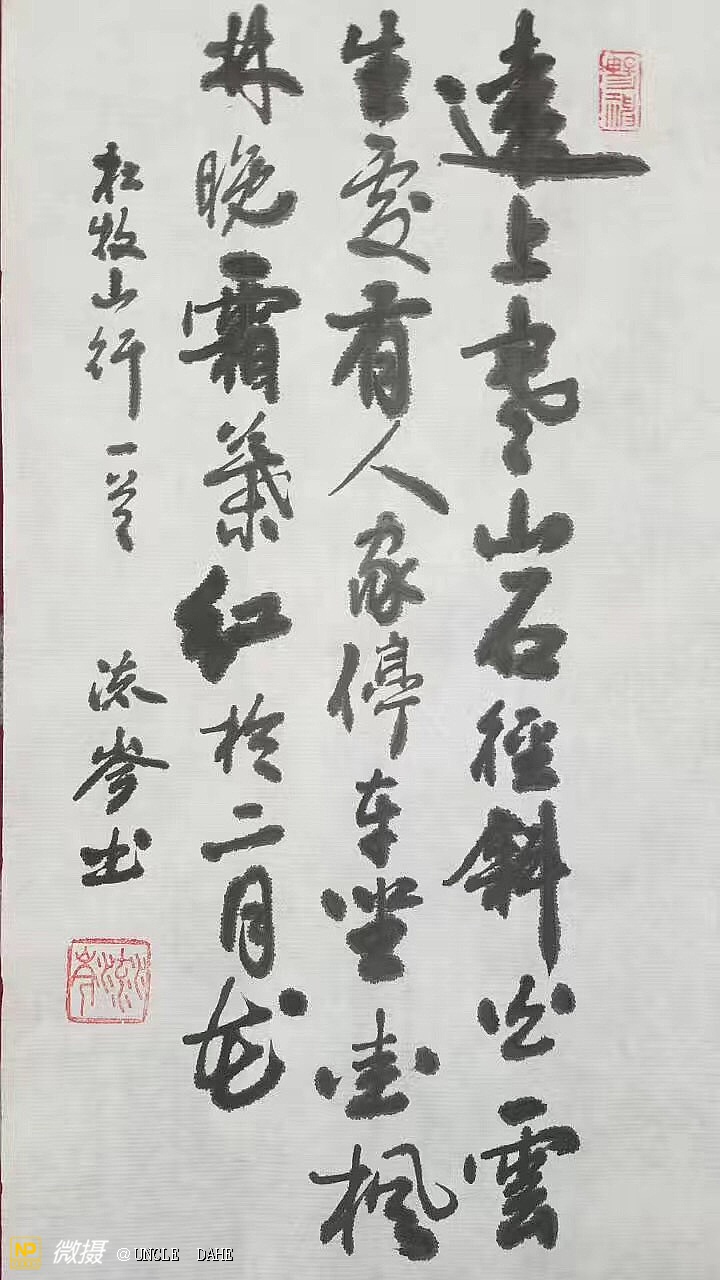 遠上寒山石徑斜白雲
生處有人家停车坐愛楓
林晚霜葉红於二月花
杜牧山行一首
流岑书
NP 微摄 @UNCLE DAHE